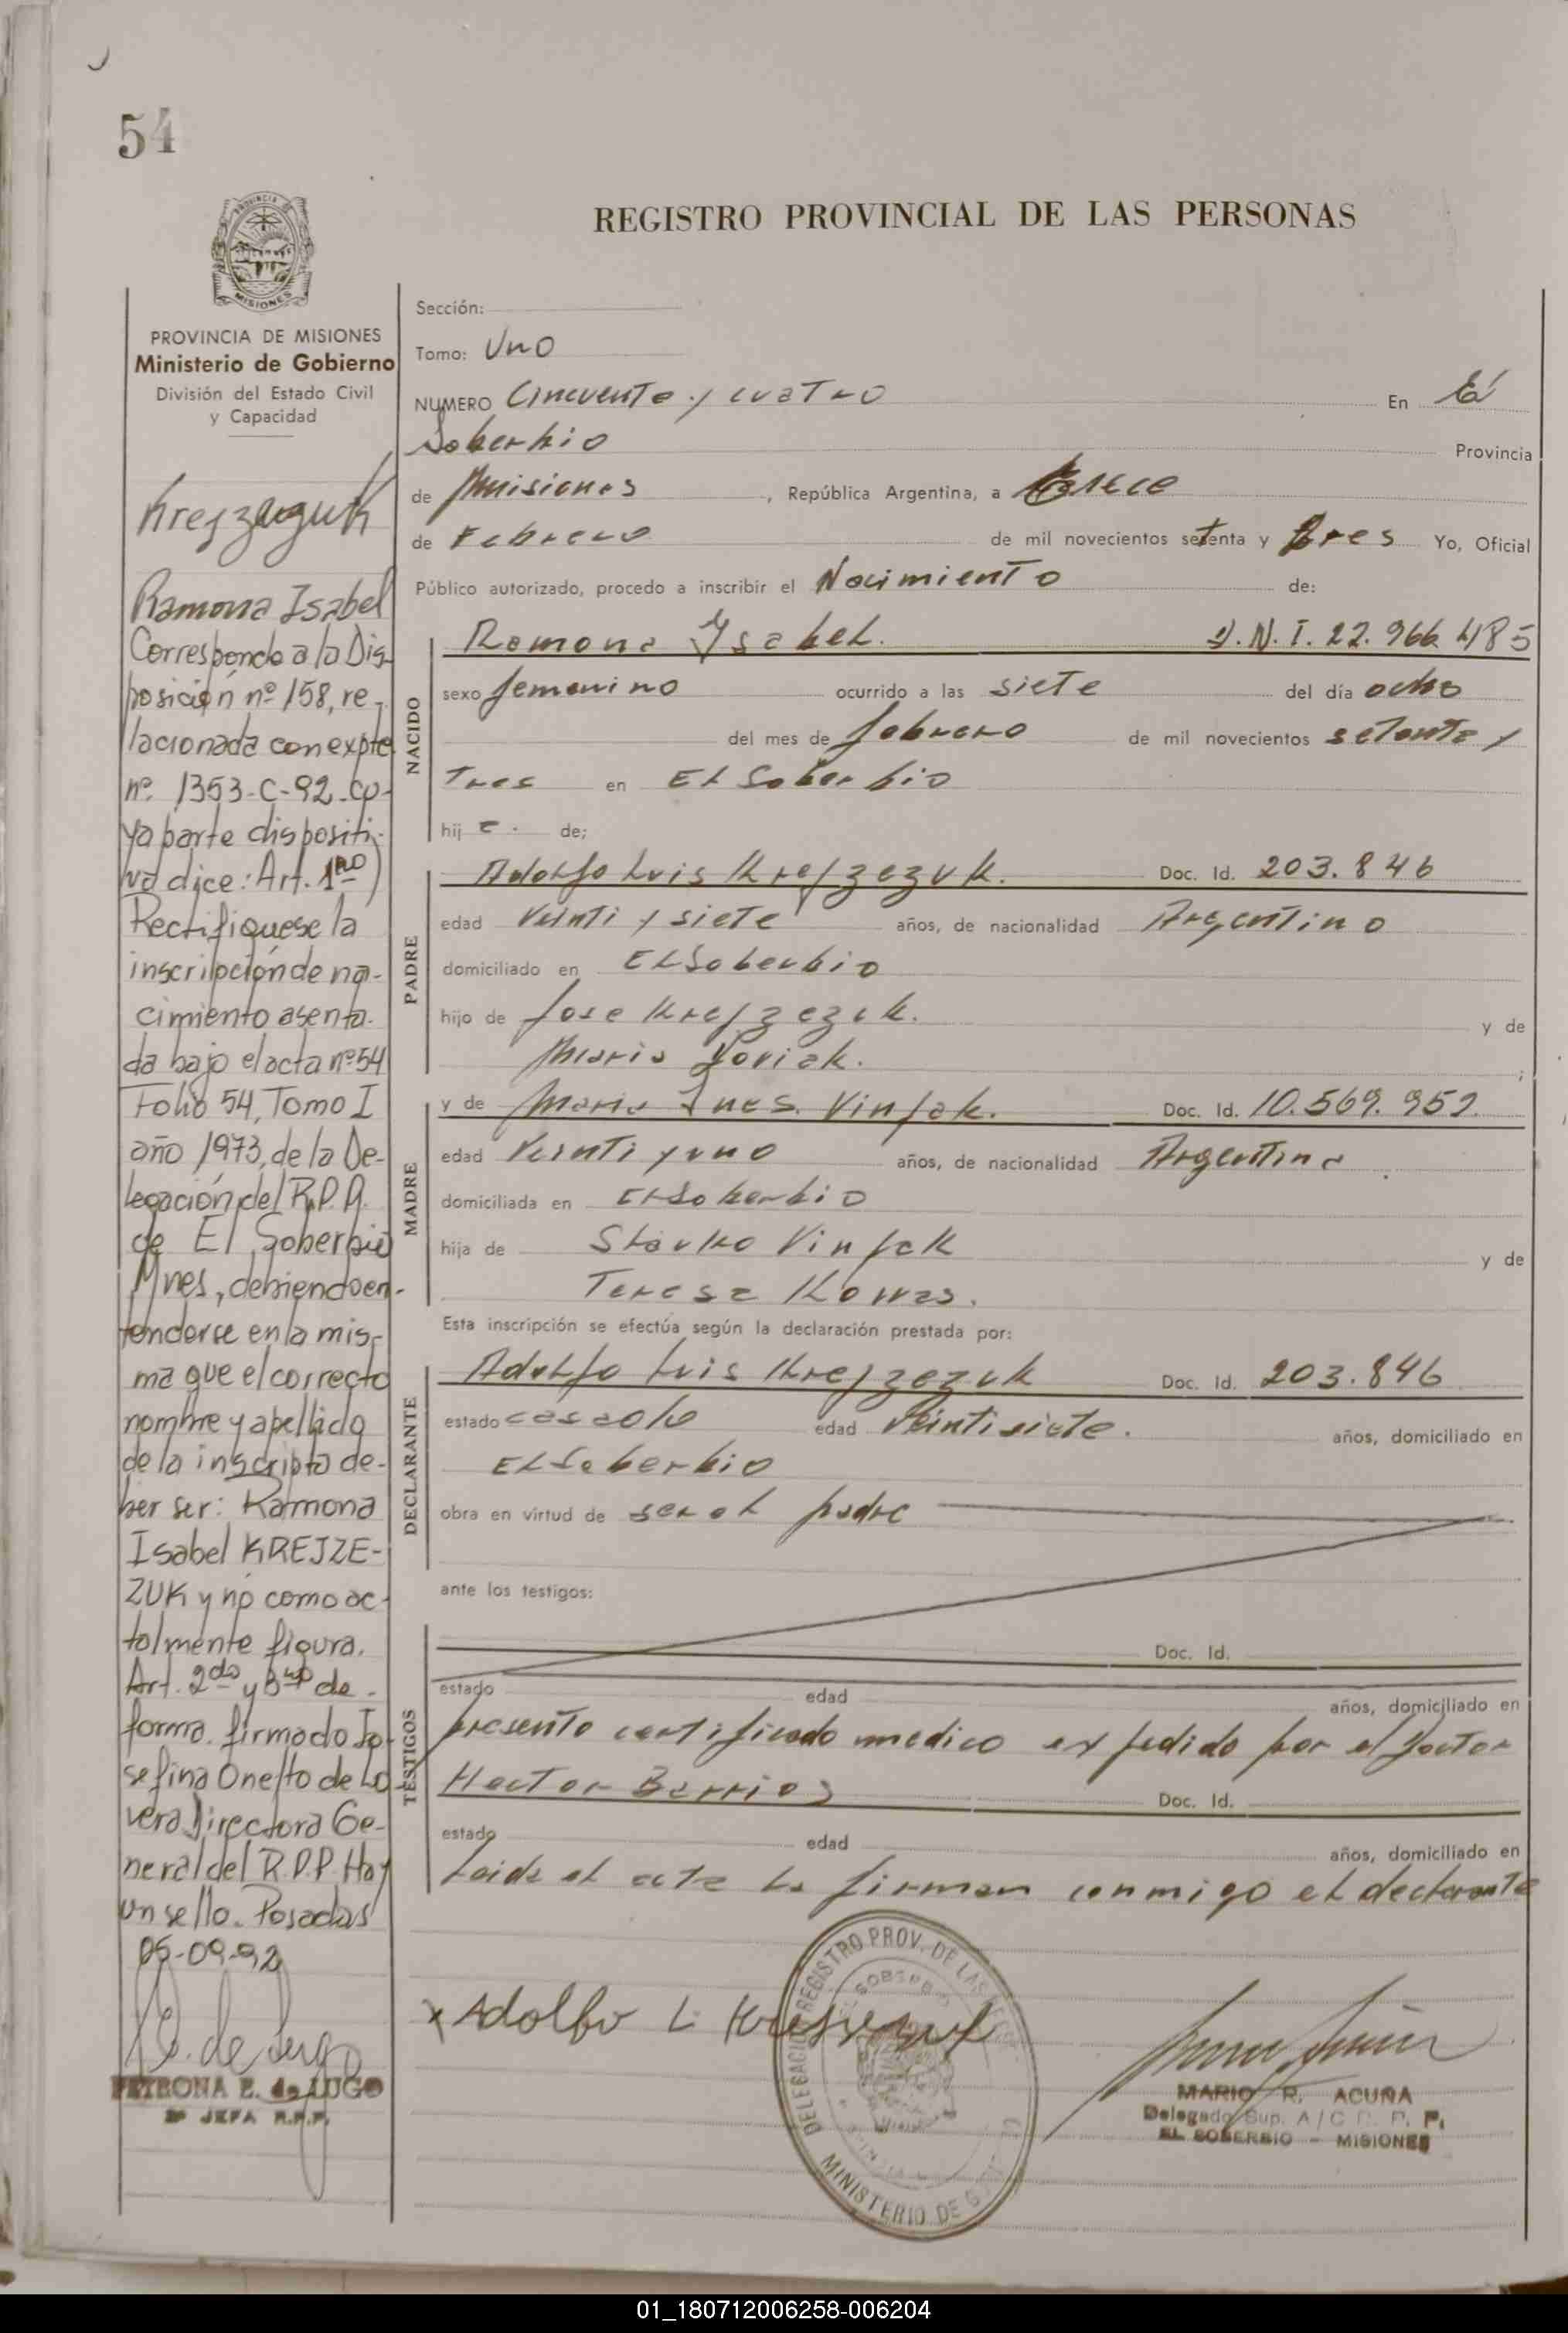 54
REGISTRO PROVINCIAL DE LAS PERSONAS
PROVINCIA DE
MISIONES
PROVINCIA DE MISIONES
Ministerio de Gobierno
División del Estado Civil
y Capacidad
Ramona Isabel
Corresponde a la Dis-
posición nº 158, re-
lacionada con expte
nº 1353-C-92-cu-
ya parte dispositi-
va dice: Art. 1ro)
Rectifiquese la
inscripción de na-
cimiento asenta-
da bajo el acta nº 54
Folio 54, Tomo I
año 1973, de la De-
legación del R.P.P.
de El Soberbio
Mnes, debiendo en-
tenderse en la mis-
ma que el correcto
nombre y apellido
de la inscripta de-
ber ser: Ramona
Isabel KREJZE-
ZUK y no como ac-
talmente figura.
Art. 2do y 3ro de
forma. firmado Jo-
sefina Onetto de Lo
vera Directora Ge-
neral del R.P.P. Hay
un sello. Posadas
05-09-92
PETRONA E. de LUGO
2ª JEFA R.P.P.
Sección:
Tomo: Uno
NUMERO Cincuenta y cuatro En El
Soberbio Provincia
de Misiones, República Argentina, a trece
de Febrero de mil novecientos setenta y tres Yo, Oficial
Público autorizado, procedo a inscribir el Nacimiento de:
NACIDO
Ramona Ysabel. D.N.I. 22.966.485
sexo femenino ocurrido a las siete del día ocho
del mes de febrero de mil novecientos setenta y
tres en El Soberbio
hij a. de;
PADRE
Adolfo Luis Krejzezuk. Doc. Id. 203.846
edad Veinti y siete años, de nacionalidad Argentino
domiciliado en El Soberbio
hijo de Jose Krejzezuk. y de
Maria ;
MADRE
y de Maria Ines Vinjak. Doc. Id. 10.569.952
edad Veinti y uno años, de nacionalidad Argentina
domiciliada en El Soberbio
hija de Vinjak y de
Teresa
Esta inscripción se efectúa según la declaración prestada por:
DECLARANTE
Adolfo Luis Krejzezuk Doc. Id. 203.846
estado casado edad Veintisiete. años, domiciliado en
El Soberbio
obra en virtud de ser el padre
ante los testigos:
TESTIGOS
Doc. Id.
estado edad años, domiciliado en
presento certificado medico expedido por el Doctor
Hector Berrios Doc. Id.
estado edad años, domiciliado en
Leida el acta la firman conmigo el declarante
x Adolfo L.
DELEGACION REGISTRO PROV. DE LAS
EL SOBERBIO
MINISTERIO DE
MARIO R. ACUÑA
Delegado Sup. A/C R. P. P.
EL SOBERBIO - MISIONES
01_180712006258-006204